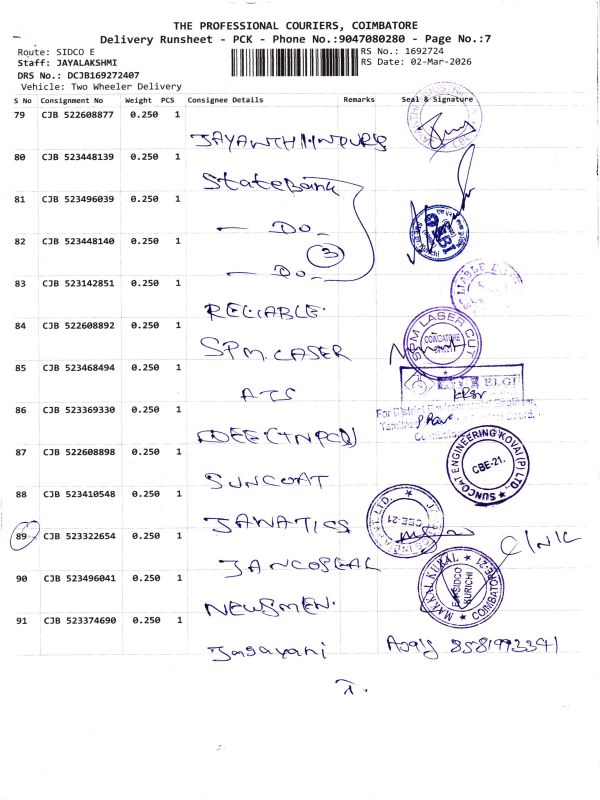 THE PROFESSIONAL COURIERS, COIMBATORE
Delivery Runsheet - PCK - Phone No.:9047080280 - Page No.:7
Route: SIDCO E
RS No.: 1692724
Staff: JAYALAKSHMI
RS Date: 02-Mar-2026
DRS No.: DCJB169272407
Vehicle: Two Wheeler Delivery
S No Consignment No Weight PCS Consignee Details Remarks Seal & Signature
79 CJB 522608877 0.250 1
80 CJB 523448139 0.250 1
State Bank
81 CJB 523496039 0.250 1
— Do —
82 CJB 523448140 0.250 1
3
— Do —
83 CJB 523142851 0.250 1
RELIABLE.
84 CJB 522608892 0.250 1
SPM LASER CUT
COIMBATORE
SPM. LASER
85 CJB 523468494 0.250 1
ELGI
ATS
86 CJB 523369330 0.250 1
87 CJB 522608898 0.250 1
SUNCOAT ENGINEERING KOVAI (P) LTD.,
CBE-21.
SUNCOAT
88 CJB 523410548 0.250 1
CBE-21
JANATICS
89 CJB 523322654 0.250 1
CLNIC
JANCOSEAL
90 CJB 523496041 0.250 1
MAKKAL KURAL
COIMBATORE-21
E SIDCO
KURICHI
NEWSMEN.
91 CJB 523374690 0.250 1
8581993341